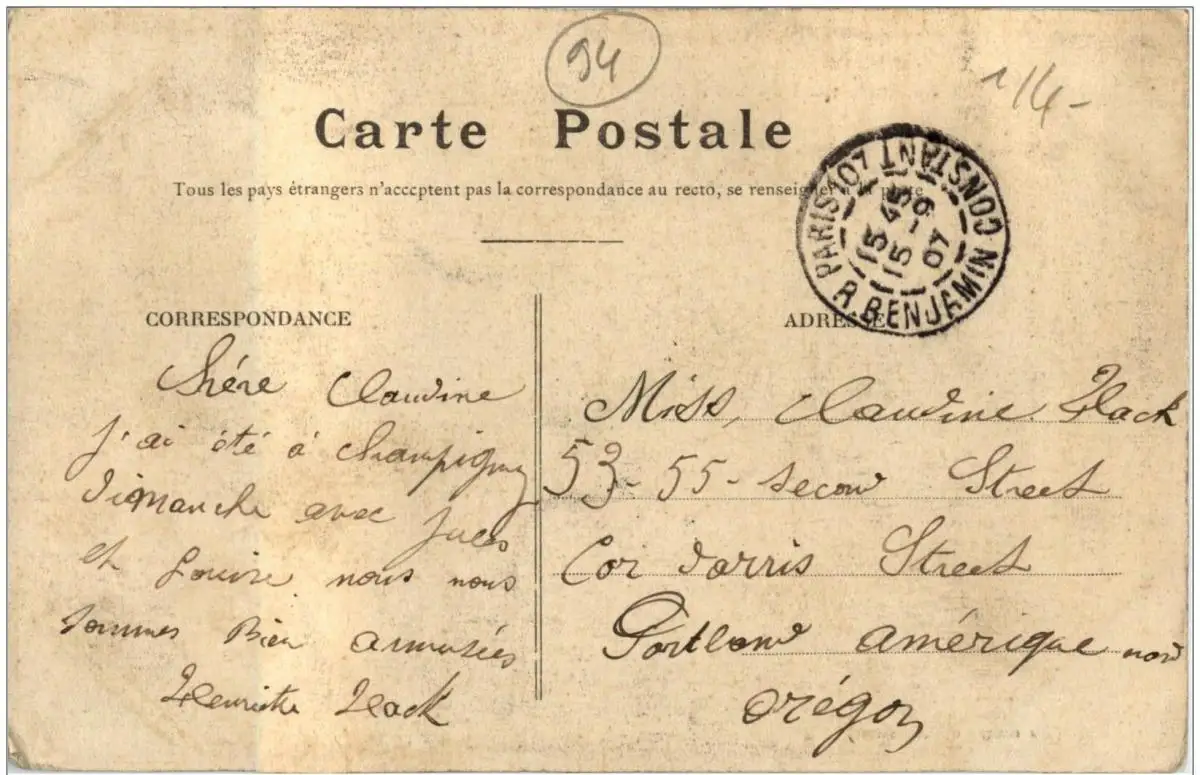 94
1/4-
Carte Postale
Tous les pays étrangers n'acceptent pas la correspondance au recto, se renseigner à la poste
PARIS 107 R. BENJAMIN CONSTANT
15 45
15 -9
07
CORRESPONDANCE
Chére Claudine
j'ai été á Champigny
dimanche avec Jules
et Louise nous nous
sommes Bien amusées
Henriette Flack
ADRESSE
Miss, Claudine Flack
53-55-second Street
Cor Street
Portland amérique nord
Orégon